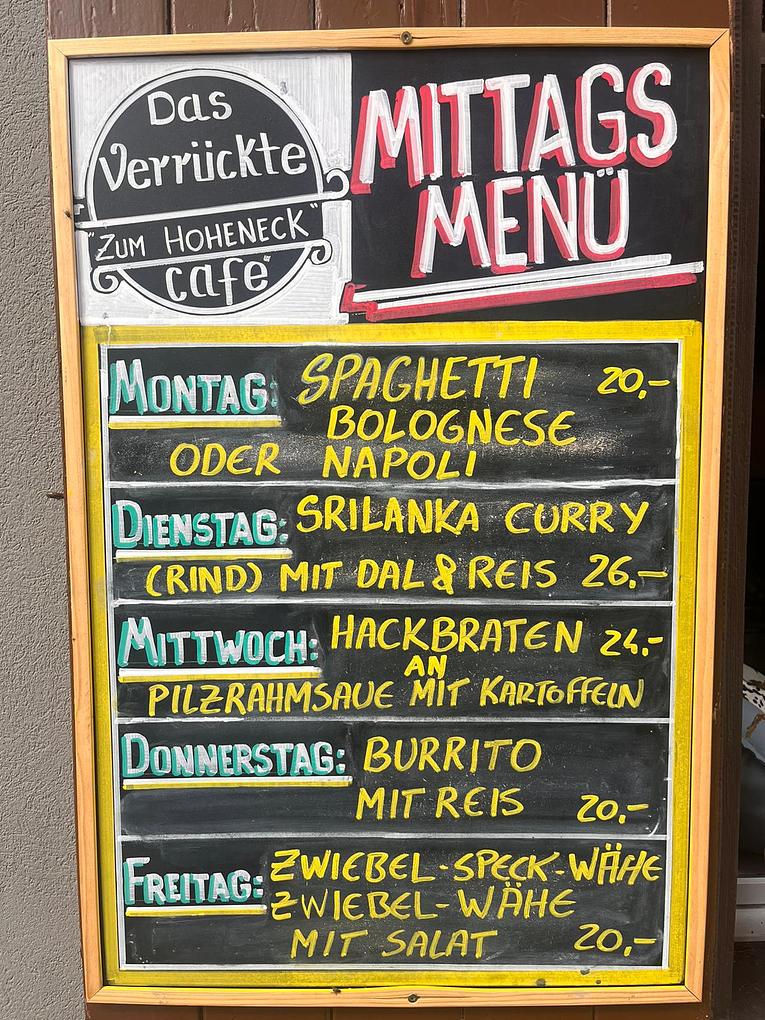 Das
Verrückte
"ZUM HOHENECK"
café"
MITTAGS
MENÜ
MONTAG: SPAGHETTI 20,-
BOLOGNESE
ODER NAPOLI
DIENSTAG: SRILANKA CURRY
(RIND) MIT DAL & REIS 26.-
MITTWOCH: HACKBRATEN 24.-
AN
PILZRAHMSAUE MIT KARTOFFELN
DONNERSTAG: BURRITO
MIT REIS 20,-
FREITAG: ZWIEBEL-SPECK-WÄHE
ZWIEBEL-WÄHE
MIT SALAT 20,-